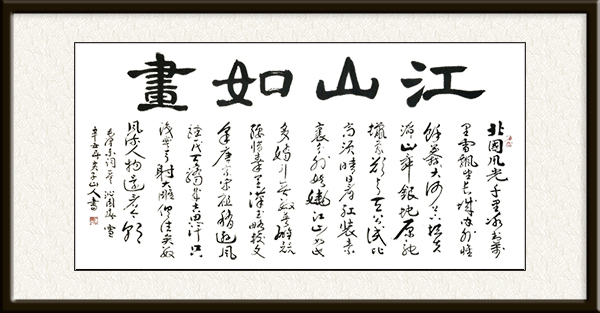 江山如畫
北国风光千里冰封万
里雪飘望长城内外惟
余莽莽大河上下顿失
滔滔山舞银蛇原驰
蜡象欲与天公试比
高须晴日看红装素
裹分外妖娆江山如此
多娇引无数英雄竞
折腰惜秦皇汉武略输文
采唐宗宋祖稍逊风
骚一代天骄成吉思汗只
识弯弓射大雕俱往矣数
风流人物还看今朝
毛泽东词 沁园春雪
辛丑年 山人书